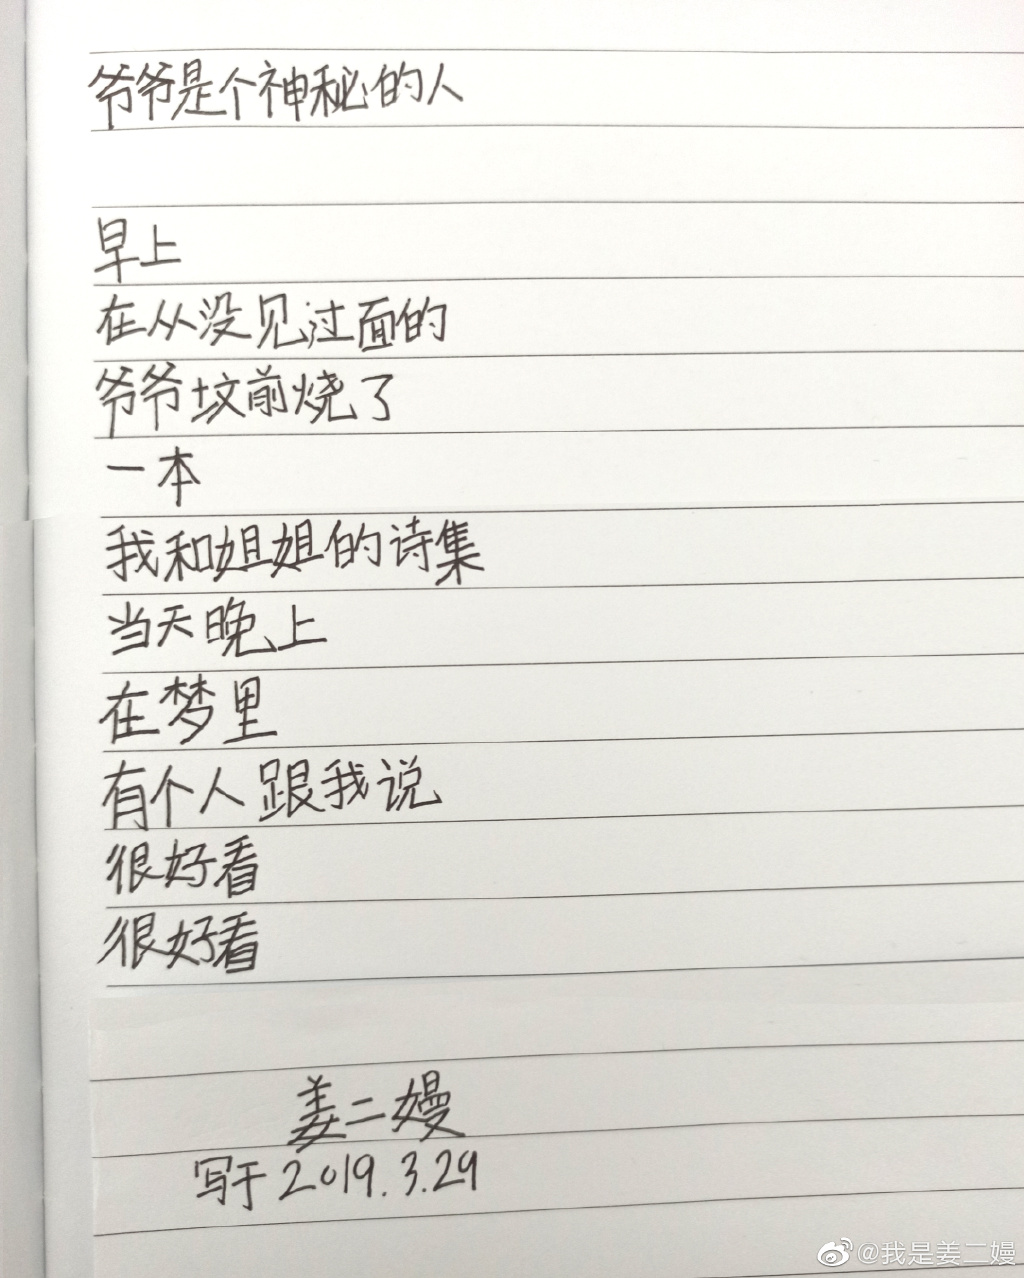 爷爷是个神秘的人
早上
在从没见过面的
爷爷坟前烧了
一本
我和姐姐的诗集
当天晚上
在梦里
有个人跟我说
很好看
很好看
姜二嫚
写于2019.3.29
@我是姜二嫚